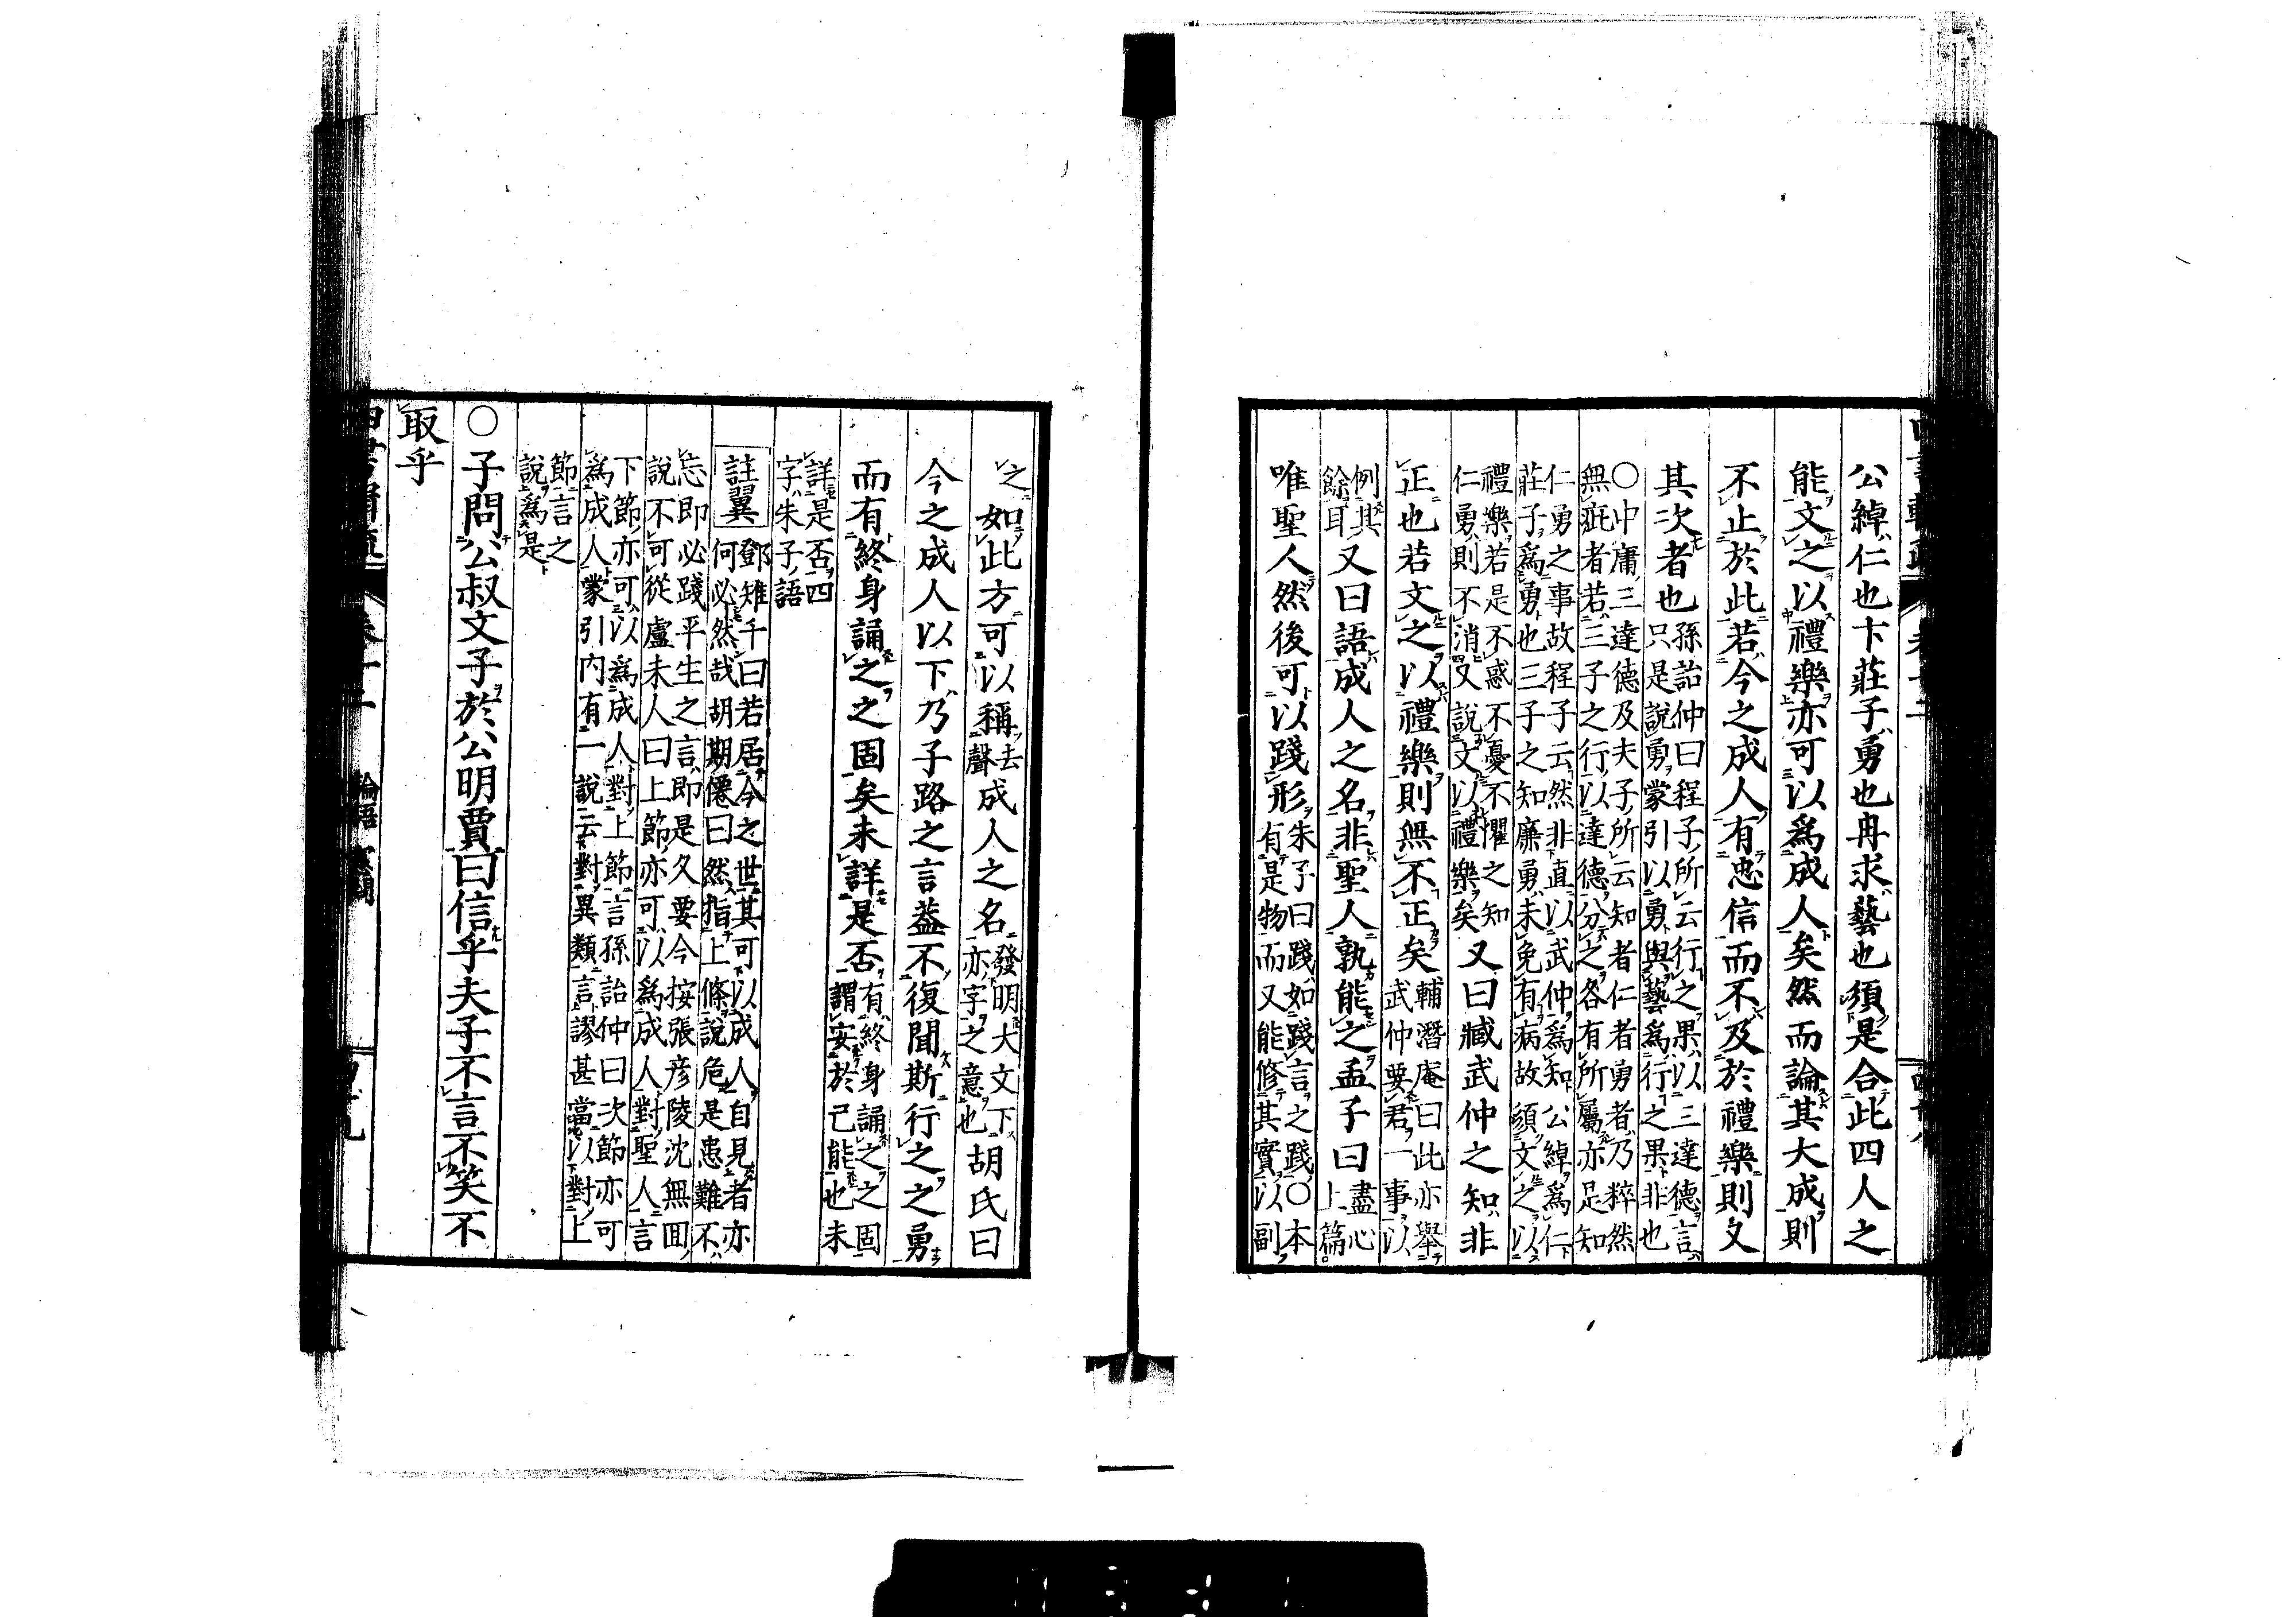 公綽仁也卞莊子勇也冉求藝也須是合此四人之
能文之以禮樂亦可以爲成人矣然而論其大成則
不止於此若今之成人有忠信而不及於禮樂則文
其次者也孫詒仲曰程子所云行之果以三達德言
只是說勇蒙引以勇與藝爲行之果非也
○中庸三達德及夫子所云知者仁者勇者乃粹然
無疵者若三子之行以達德分之各有所屬亦足知
仁勇之事故程子云然非直以武仲爲知公綽爲仁
莊子爲勇也三子之知廉勇未免有病故須文之以
禮樂若是不惑不憂不懼之知
仁勇則不消又說文以禮樂矣又曰臧武仲之知非
正也若文之以禮樂則無不正矣輔潛庵曰此亦舉
武仲要君一事以
例其
餘耳又曰語成人之名非聖人孰能之孟子曰盡心
上篇
唯聖人然後可以踐形朱子曰踐如踐言之踐○本
有是物而又能修其實以副
之如此方可以稱去聲成人之名發明大文下
亦字之意也胡氏曰
今之成人以下乃子路之言蓋不復聞斯行之之勇
而有終身誦之之固矣未詳是否有終身誦之之固
謂安於己能也未
詳是否四
字朱子語
註翼鄧雉千曰若居今之世其可以成人自見者亦
何必然哉胡期僊曰然指上條說危是患難不
忘即必踐平生之言即是久要今按張彦陵沈無囘
說不可從盧未人曰上節亦可以爲成人對聖人言
下節亦可以爲成人對上節言孫詒仲曰次節亦可
爲成人蒙引內有一說云對異類言謬甚當以對上
節言之
說爲是
○子問公叔文子於公明賈曰信乎夫子不言不笑不
取乎